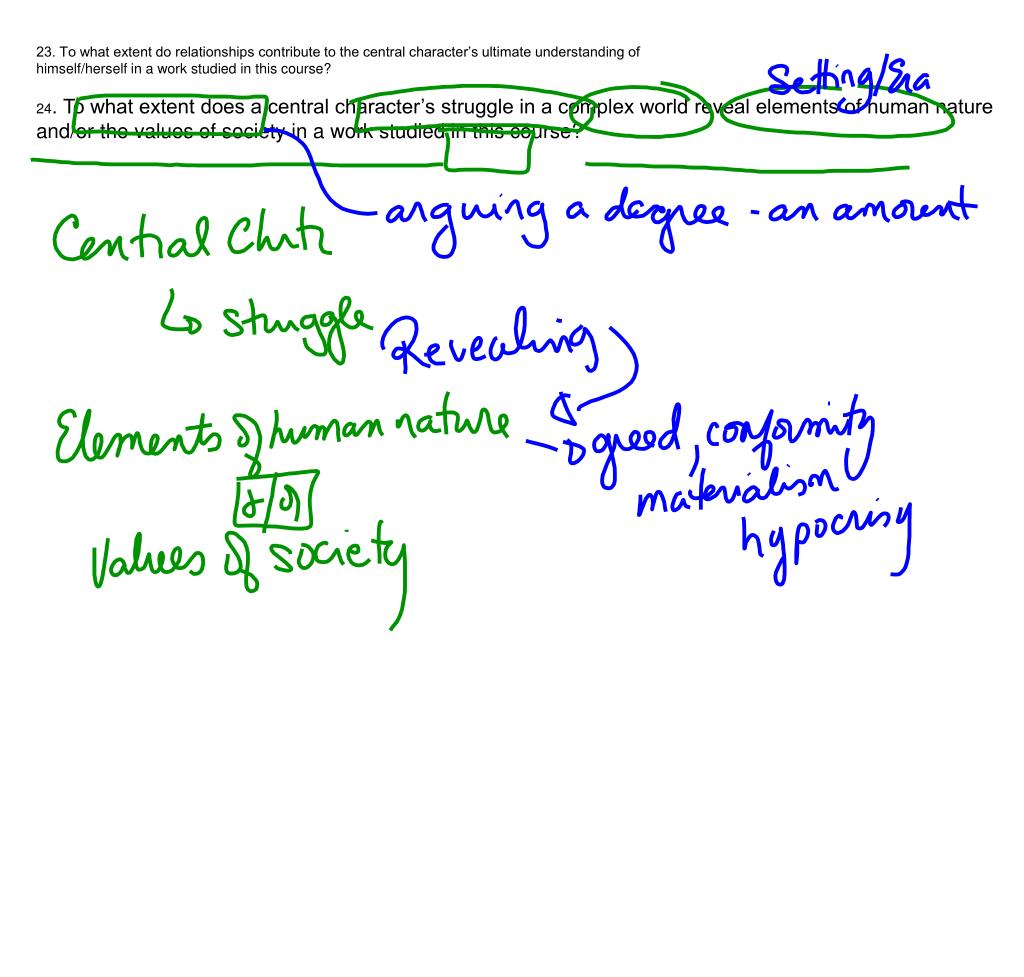 23. To what extent do relationships contribute to the central character's ultimate understanding of
himself/herself in a work studied in this course?
Setting/Era
24. To what extent does a central character's struggle in a complex world reveal elements of human nature
and/or the values of society in a work studied in this course?
arguing a degree - an amount
Central Chrtr
↳ struggle
Revealing
Elements of human nature
→ greed, conformity
materialism
hypocrisy
Values of society